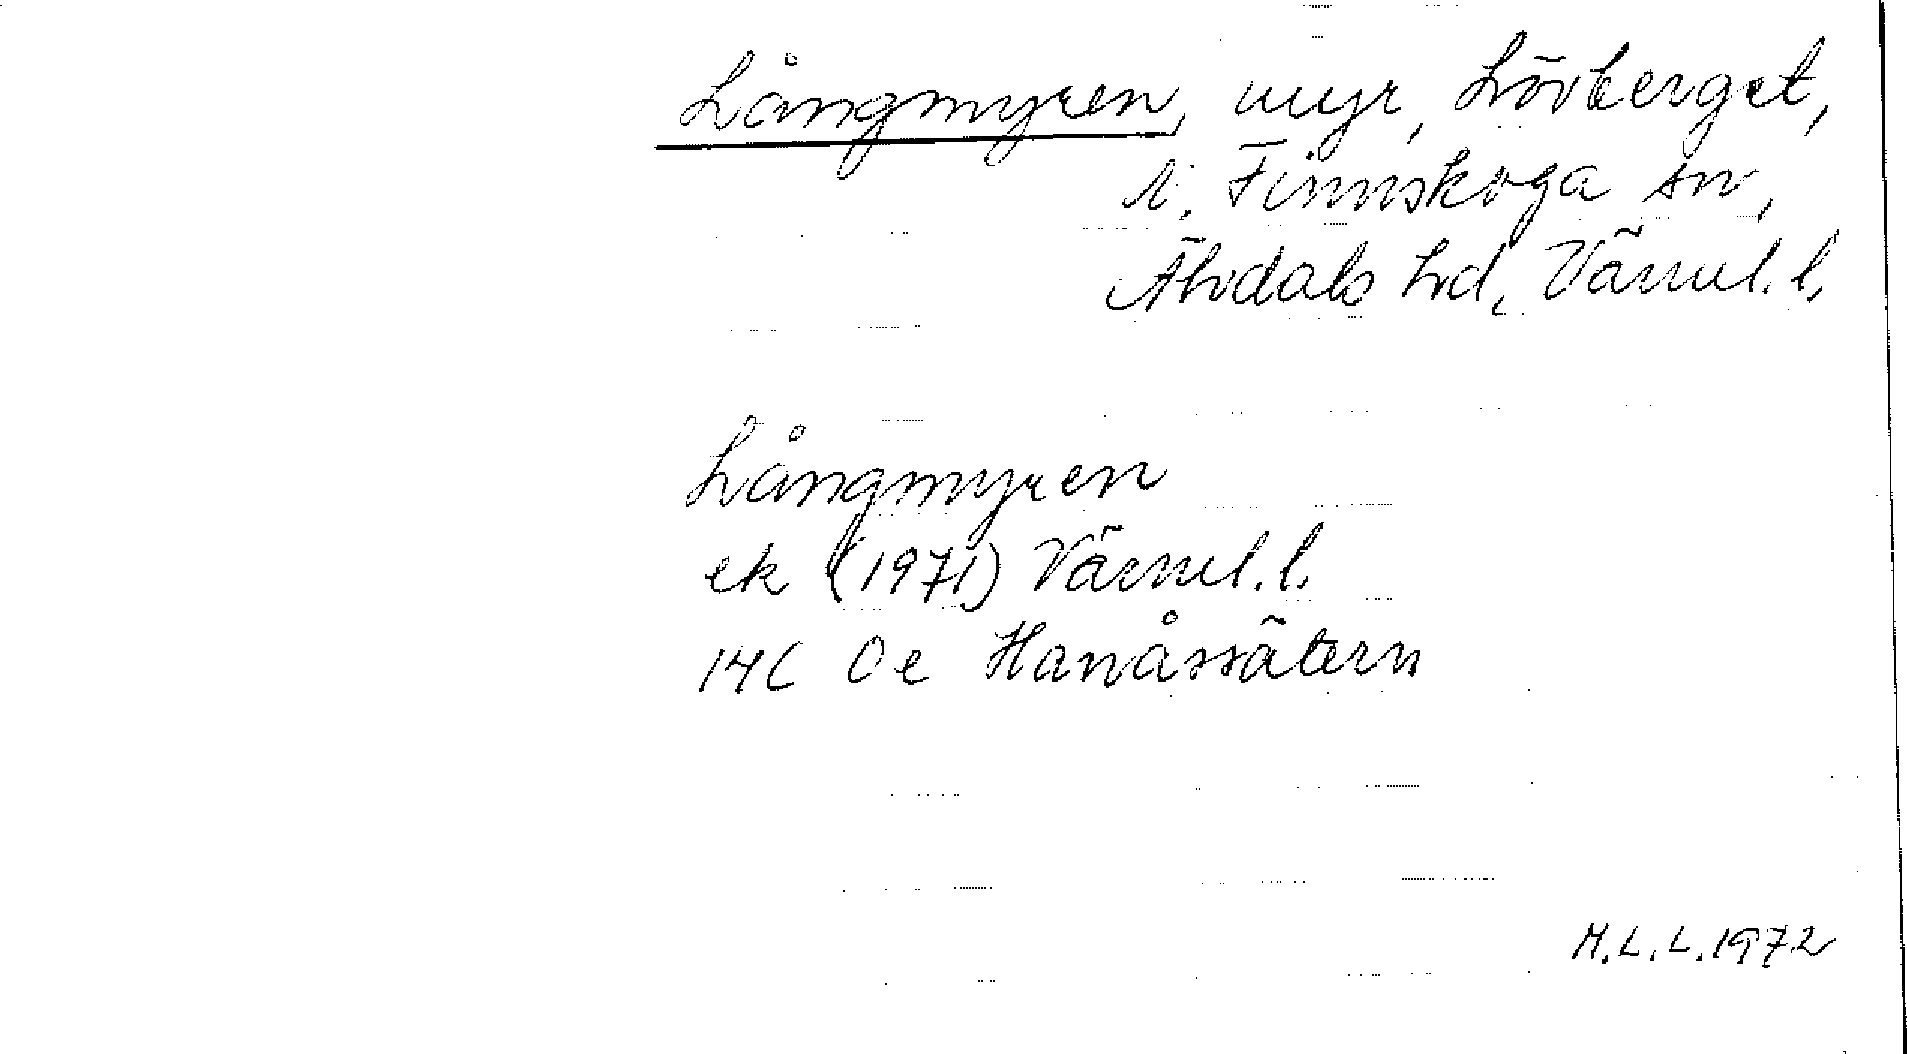 Långmyren, myr, Lövberget,
N. Finnskoga sn,
Älvdals hd, Värml. l.
Långmyren
ek (1971) Värml. l.
14C 0e Hanåssätern
M.L.L. 1972